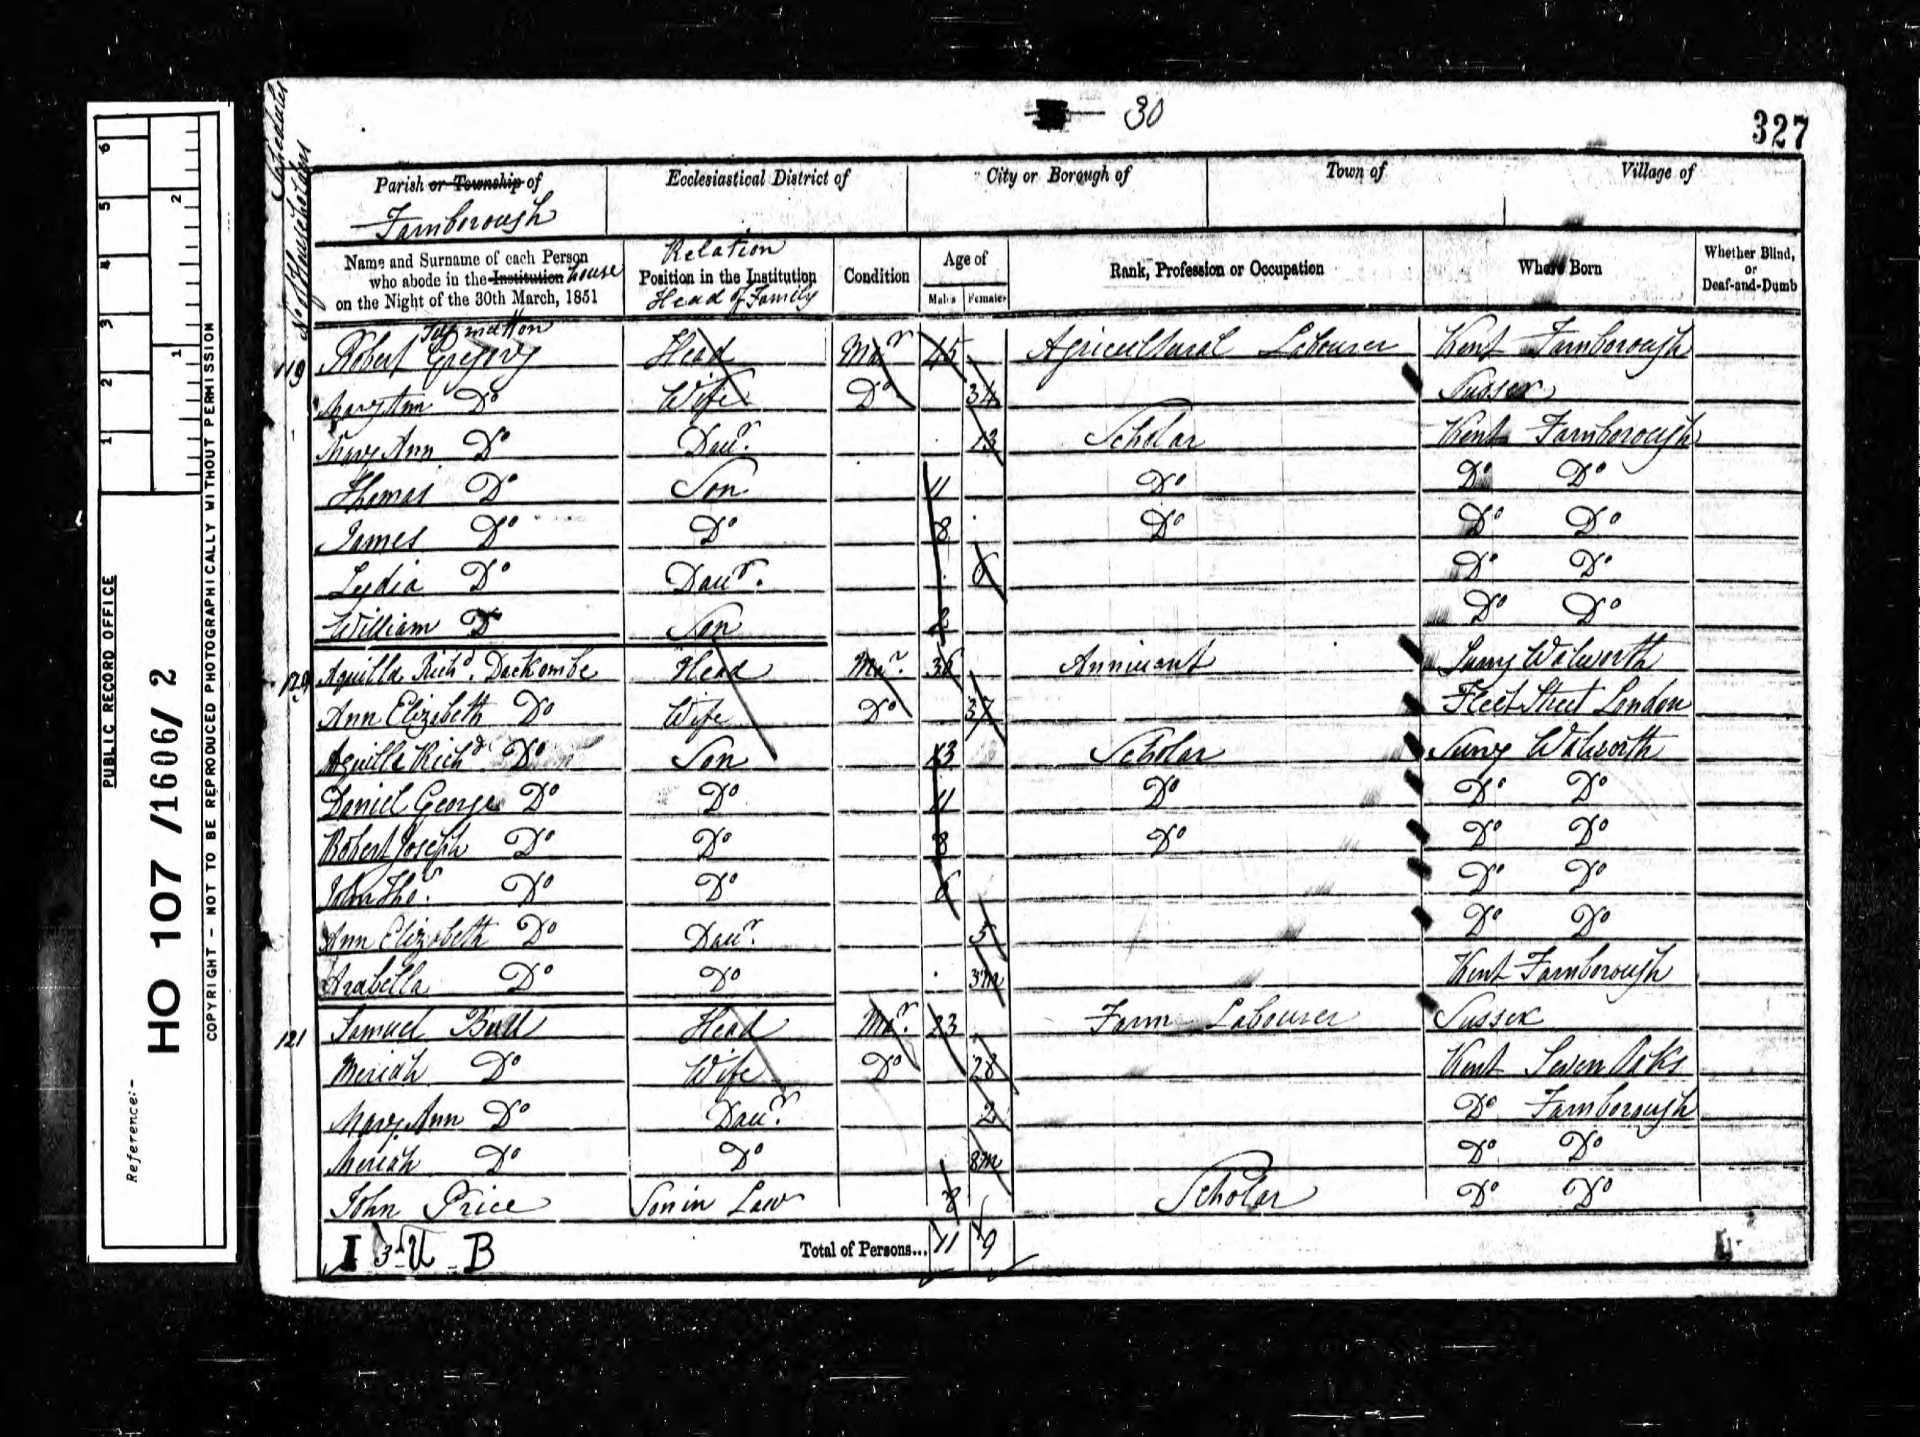 30
327
Parish or Township of
Farnborough
Ecclesiastical District of
City or Borough of
Town of
Village of
No of Householders Schedules
Name and Surname of each Person
who abode in the Institution house
on the Night of the 30th March, 1851
Relation
Position in the Institution
Head of Family
Condition
Age of
Males Females
Rank, Profession or Occupation
Where Born
Whether Blind,
or
Deaf-and-Dumb
119 Robert Gregory Head Mar 45 Agricultural Labourer Kent Farnborough
Mary Ann Do Wife Do 34 Sussex
Mary Ann Do Daur. 13 Scholar Kent Farnborough
Thomas Do Son 11 Do Do Do
James Do Do 8 Do Do Do
Lydia Do Daur. 6 Do Do
William Do Son 2 Do Do
120 Aquilla Richd. Dackombe Head Mar. 36 Annuiant Surry Walworth
Ann Elizabeth Do Wife Do 37 Fleet Street London
Aquilla Richd. Do Son 13 Scholar Surry Walworth
Daniel George Do Do 11 Do Do Do
Robert Joseph Do Do 8 Do Do Do
John Thos. Do Do 6 Do Do
Ann Elizabeth Do Daur. 5 Do Do
Arabella Do Do 3m Kent Farnborough
121 Samuel Bull Head Mar. 23 Farm Labourer Sussex
Meriah Do Wife Do 28 Kent Seven Oaks
Mary Ann Do Daur. 2 Do Farnborough
Meriah Do Do 8m Do Do
John Price Son in Law 8 Scholar Do Do
I 3 U B
Total of Persons... 11 9
PUBLIC RECORD OFFICE
1 2 3 4 5 6
1 2
Reference:-
HO 107 /1606/ 2
COPYRIGHT - NOT TO BE REPRODUCED PHOTOGRAPHICALLY WITHOUT PERMISSION